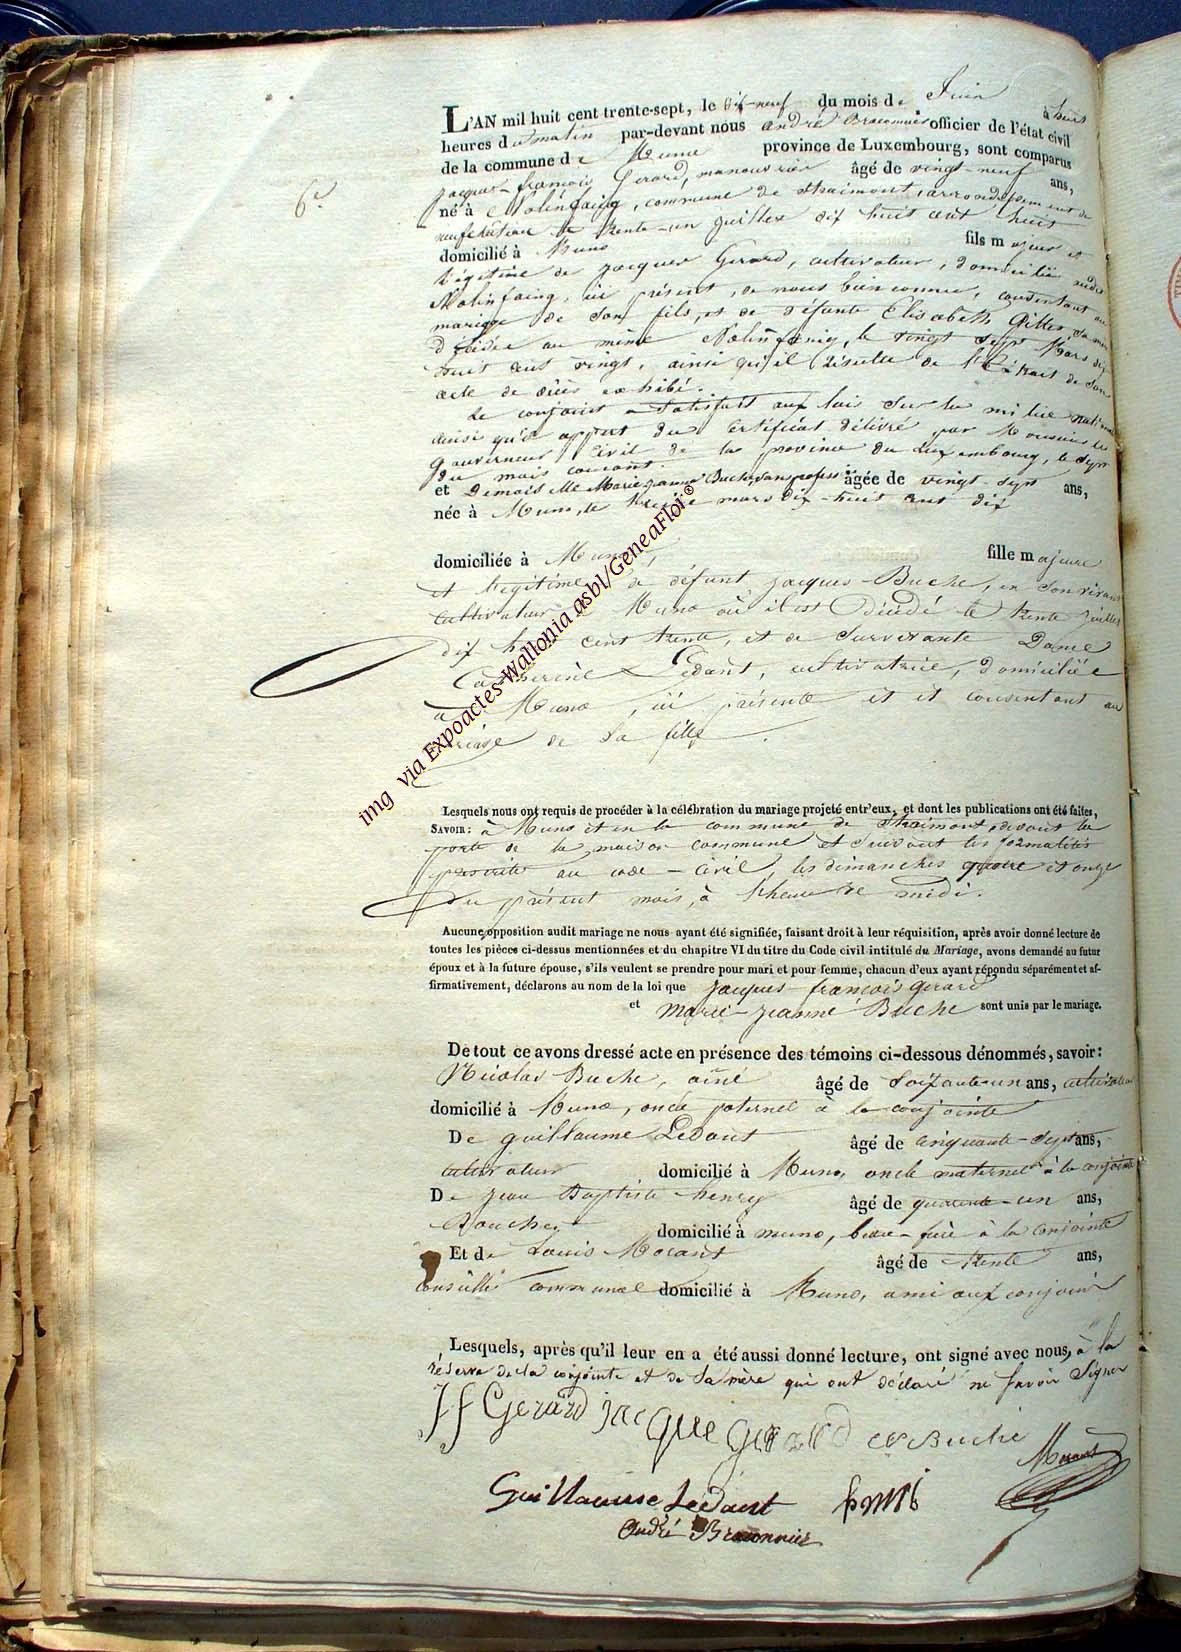 6e.
L'AN mil huit cent trente-sept, le dix-neuf du mois de Juin à huit
heures du matin par-devant nous andré Braconnier officier de l'état civil
de la commune de Muno province de Luxembourg, sont comparus
jacques-françois Gerard, manouvrier âgé de vingt-neuf ans,
né à Nolinfaing, commune de Straimont, arrondissement de
neufchateau le trente-un juillet dix huit cent huit
domicilié à Muno fils majeur et
légitime de jacques Gerard, cultivateur, domicilié audit
Nolinfaing, ici présent, de nous bien connu, consentant au
mariage de son fils, et de défunte Elisabeth Gilles, sa mère
décédée au même Nolinfaing, le vingt sept Mars dix
huit cent vingt, ainsi qu'il résulte de l'Extrait de son
acte de décès exhibé.
Le conjoint a satisfait aux lois sur la milice nationale
ainsi qu'il appert du certificat délivré par Monsieur le
Gouverneur Civil de la province du Luxembourg, le sept
du mois courant.
et Demoiselle Marie jeanne Buche, sans profession âgée de vingt-sept ans,
née à Muno, le treize mars dix-huit cent dix
domiciliée à Muno, fille majeure
et légitime de défunt jacques Buche, en son vivant
cultivateur à Muno où il est décédé le trente juillet
dix huit cent trente, et de survivante Dame
Catherine Ledant, cultivatrice, domiciliée
à Muno, ici présente et et consentant au
mariage de sa fille.
Lesquels nous ont requis de procéder à la célébration du mariage projeté entr'eux, et dont les publications ont été faites,
SAVOIR: à Muno et en la commune de Straimont, devant la
porte de la maison commune et suivant les formalités
prescrites au code-civil, les dimanches quatre et onze
du présent mois, à l'heure de midi.
Aucune opposition audit mariage ne nous ayant été signifiée, faisant droit à leur réquisition, après avoir donné lecture de
toutes les pièces ci-dessus mentionnées et du chapitre VI du titre du Code civil intitulé du Mariage, avons demandé au futur
époux et à la future épouse, s'ils veulent se prendre pour mari et pour femme, chacun d'eux ayant répondu séparément et af-
firmativement, déclarons au nom de la loi que jacques françois gerard
et marie-jeanne Buche sont unis par le mariage.
De tout ce avons dressé acte en présence des témoins ci-dessous dénommés, savoir:
Nicolas Buche, ainé âgé de soixante-un ans, cultivateur
domicilié à Muno, oncle paternel à la conjointe
De guillaume Ledant âgé de cinquante-sept ans,
cultivateur domicilié à Muno, oncle maternel à la conjointe
De jean Baptiste henry âgé de quarante-un ans,
domicilié à muno, beau-frère à la conjointe
Et de Louis Morant âgé de trente ans,
conseiller communal domicilié à Muno, ami aux conjoints
Lesquels, après qu'il leur en a été aussi donné lecture, ont signé avec nous, à la
réserve de la conjointe et de sa mère qui ont déclaré ne savoir signer
J f Gerard jacque gerard Buche
Morant
Guillaume Ledant
André Braconnier
img via Expoactes-Wallonia asbl/GeneaFloi©